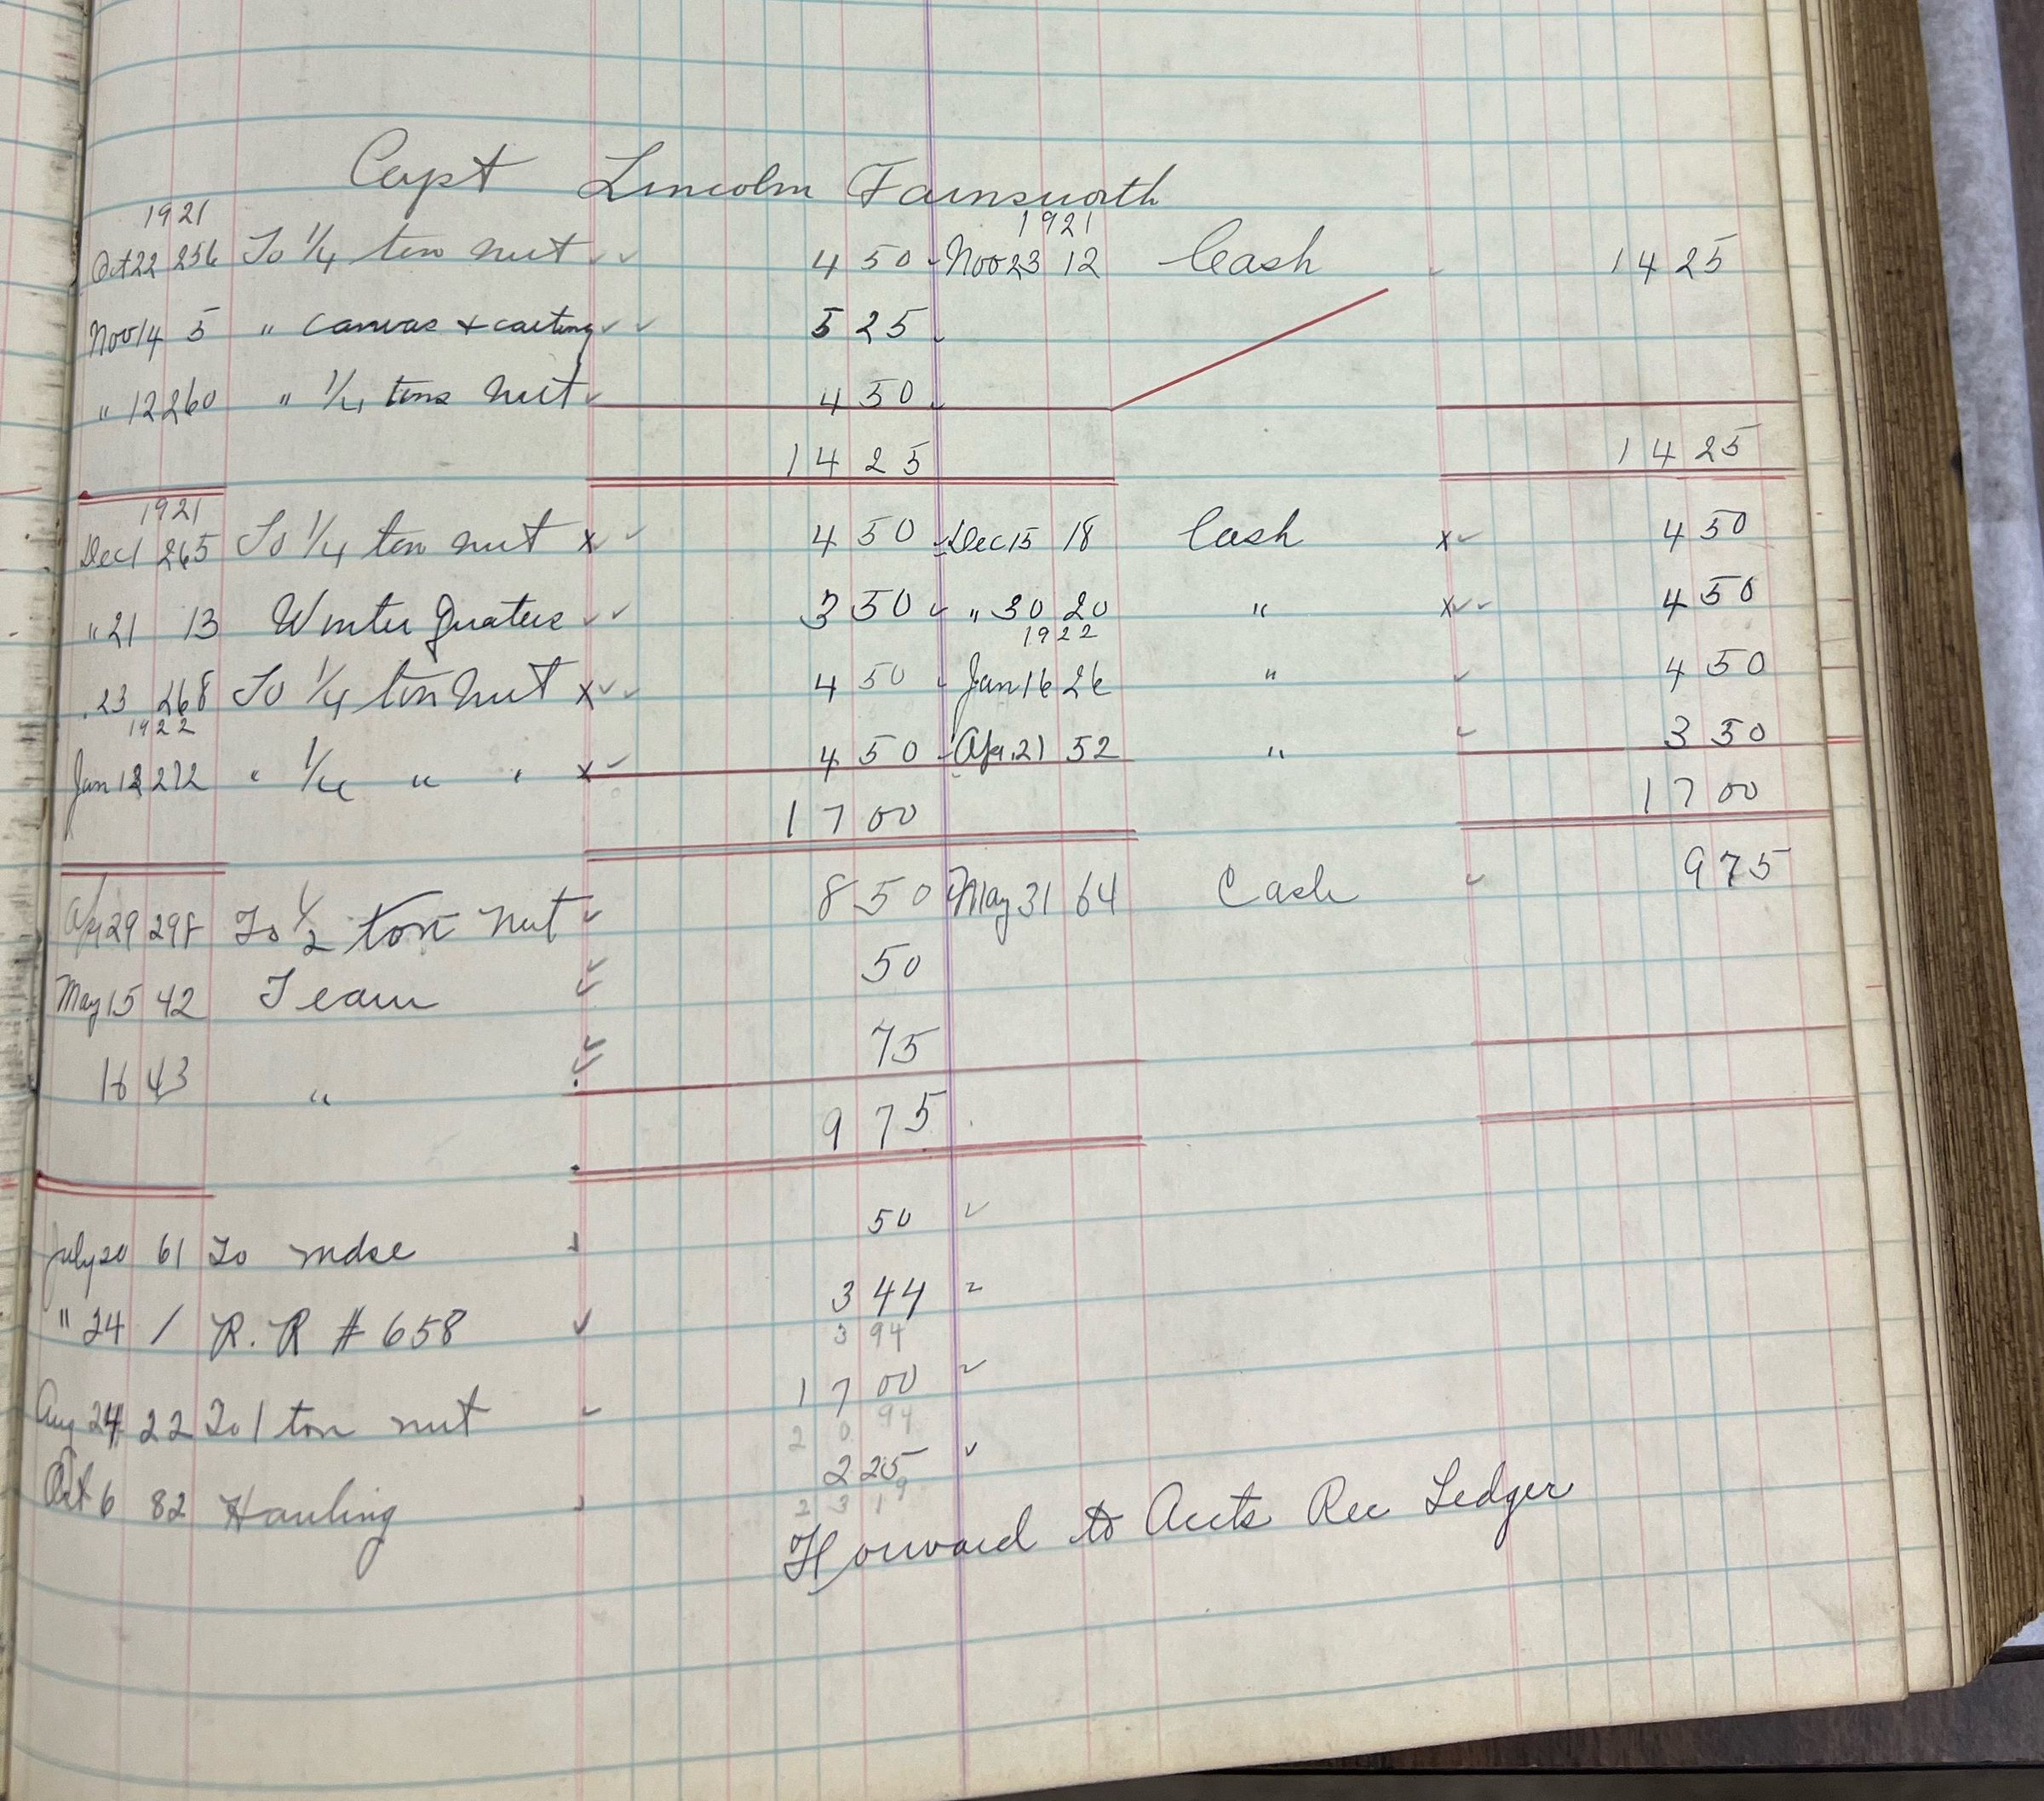 Capt Lincoln Farnsworth
1921 1921
Oct 22 256 To 1/4 ton nut 4 50 Nov 23 12 Cash 14 25
Nov 14 5 " canvas + carting 5 25
" 12 260 " 1/4 tons nut 4 50
14 25 14 25
1921
Dec 1 265 To 1/4 ton nut x 4 50 Dec 15 18 Cash x 4 50
" 21 13 Winter Quaters 3 50 " 30 20 " x 4 50
1922
23 268 To 1/4 ton nut x 4 50 Jan 16 26 " 4 50
1922
Jan 13 272 " 1/4 " " x 4 50 Apr. 21 52 " 3 50
17 00 17 00
Apr 29 298 To 1/2 ton nut 8 50 May 31 64 Cash 9 75
May 15 42 Team 50
16 43 " 75
9 75
July 20 61 To mdse 50
" 24 1 R. R # 658 3 44
3 94
Aug 24 22 To 1 ton nut 17 00
20 94
Oct 6 82 Hauling 2 25
23 19
Forward to Accts Rec Ledger